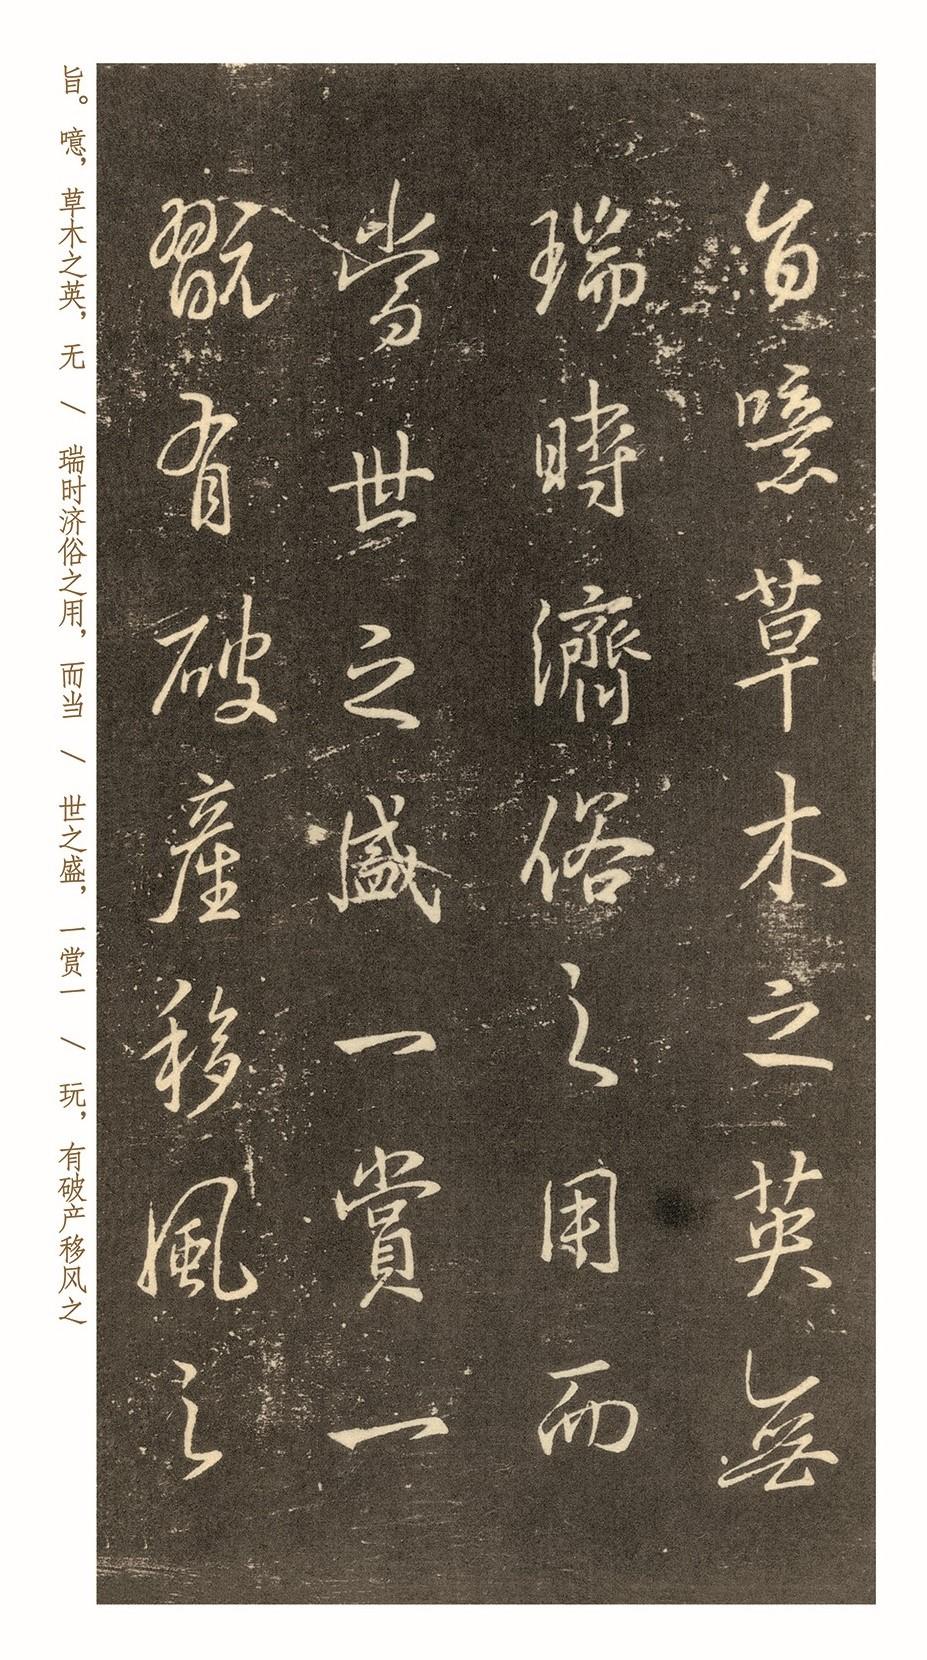 旨噫草木之英無
瑞時濟俗之用而
當世之盛一賞一
翫有破產移風之
旨。噫，草木之英，无 / 瑞时济俗之用，而当 / 世之盛，一赏一 / 玩，有破产移风之